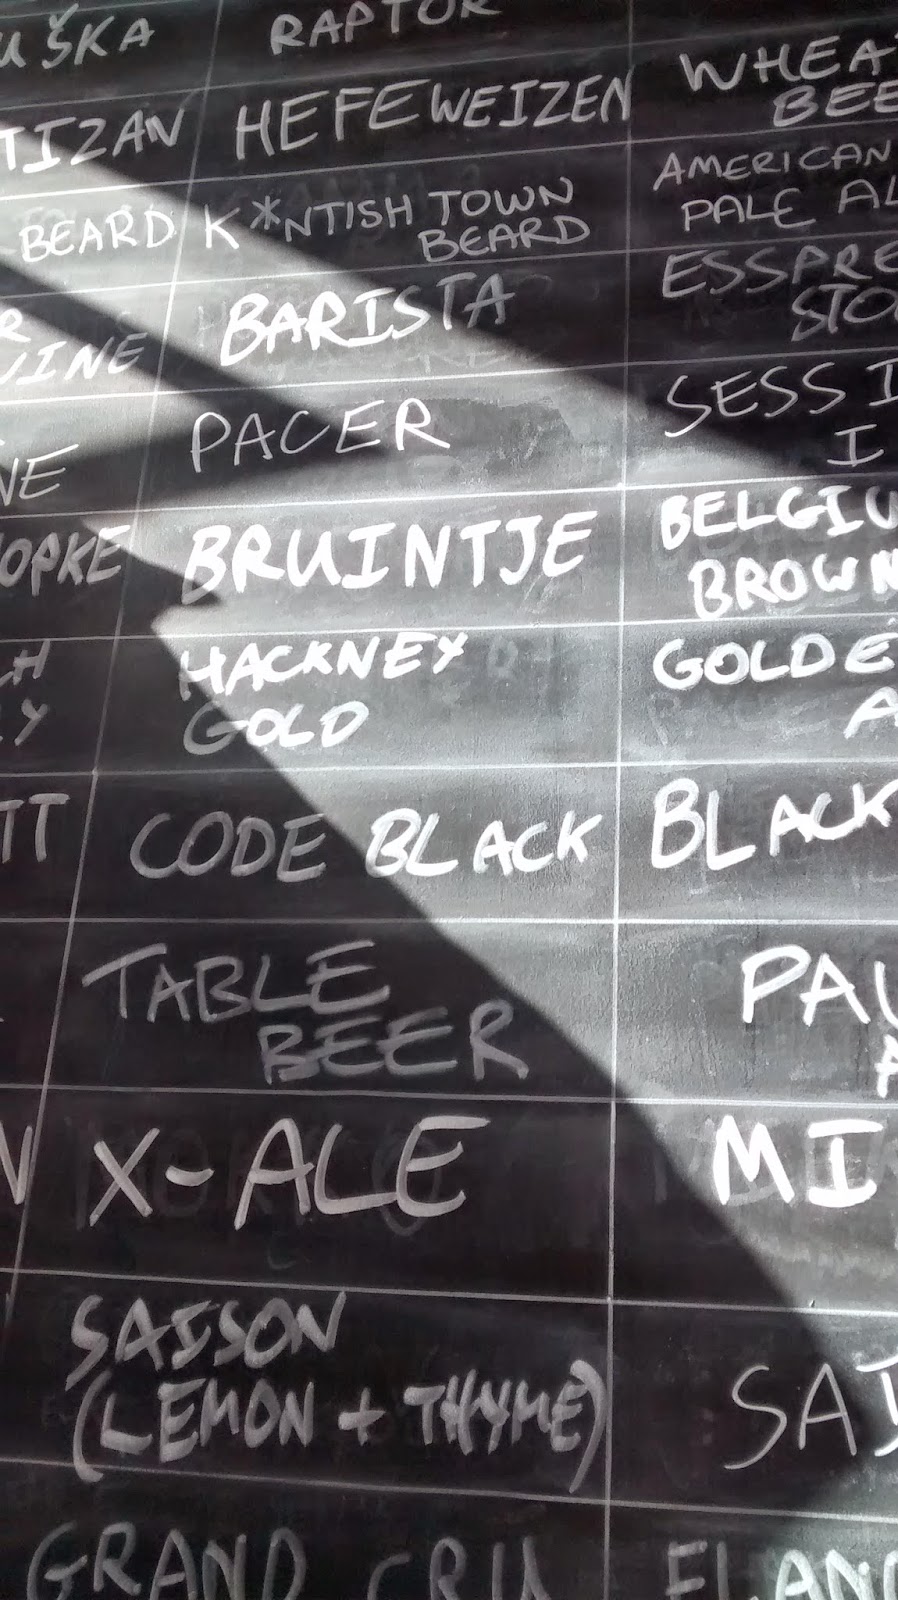 UŠKA RAPTOR
TIZAN HEFEWEIZEN WHEA
BEE
BEARD K*NTISH TOWN AMERICAN
BEARD PALE AL
R BARISTA ESSPRE
INE STO
PACER SESSI
NE I
OPKE BRUINTJE BELGIU
BROWN
H HACKNEY GOLDE
Y GOLD A
TT CODE BLACK BLACK
TABLE PA
BEER A
N X-ALE MI
SAISON
(LEMON + THYME) SAI
GRAND CRU FLAN